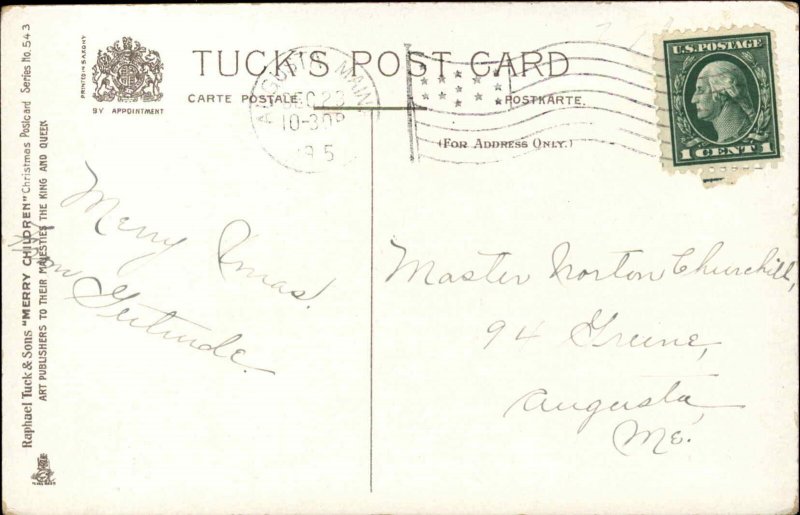 TUCK'S POST CARD
CARTE POSTALE. POSTKARTE.
(FOR ADDRESS ONLY.)
PRINTED IN SAXONY
BY APPOINTMENT
Raphael Tuck & Sons "MERRY CHILDREN" Christmas Postcard Series No. 543
ART PUBLISHERS TO THEIR MAJESTIES THE KING AND QUEEN
AUGUSTA MAINE
DEC 23
10-30P
1915
U.S. POSTAGE
1 CENT 1
Merry Xmas!
From
Gertrude.
Master Norton Churchill,
94 Greene,
Augusta,
Me.